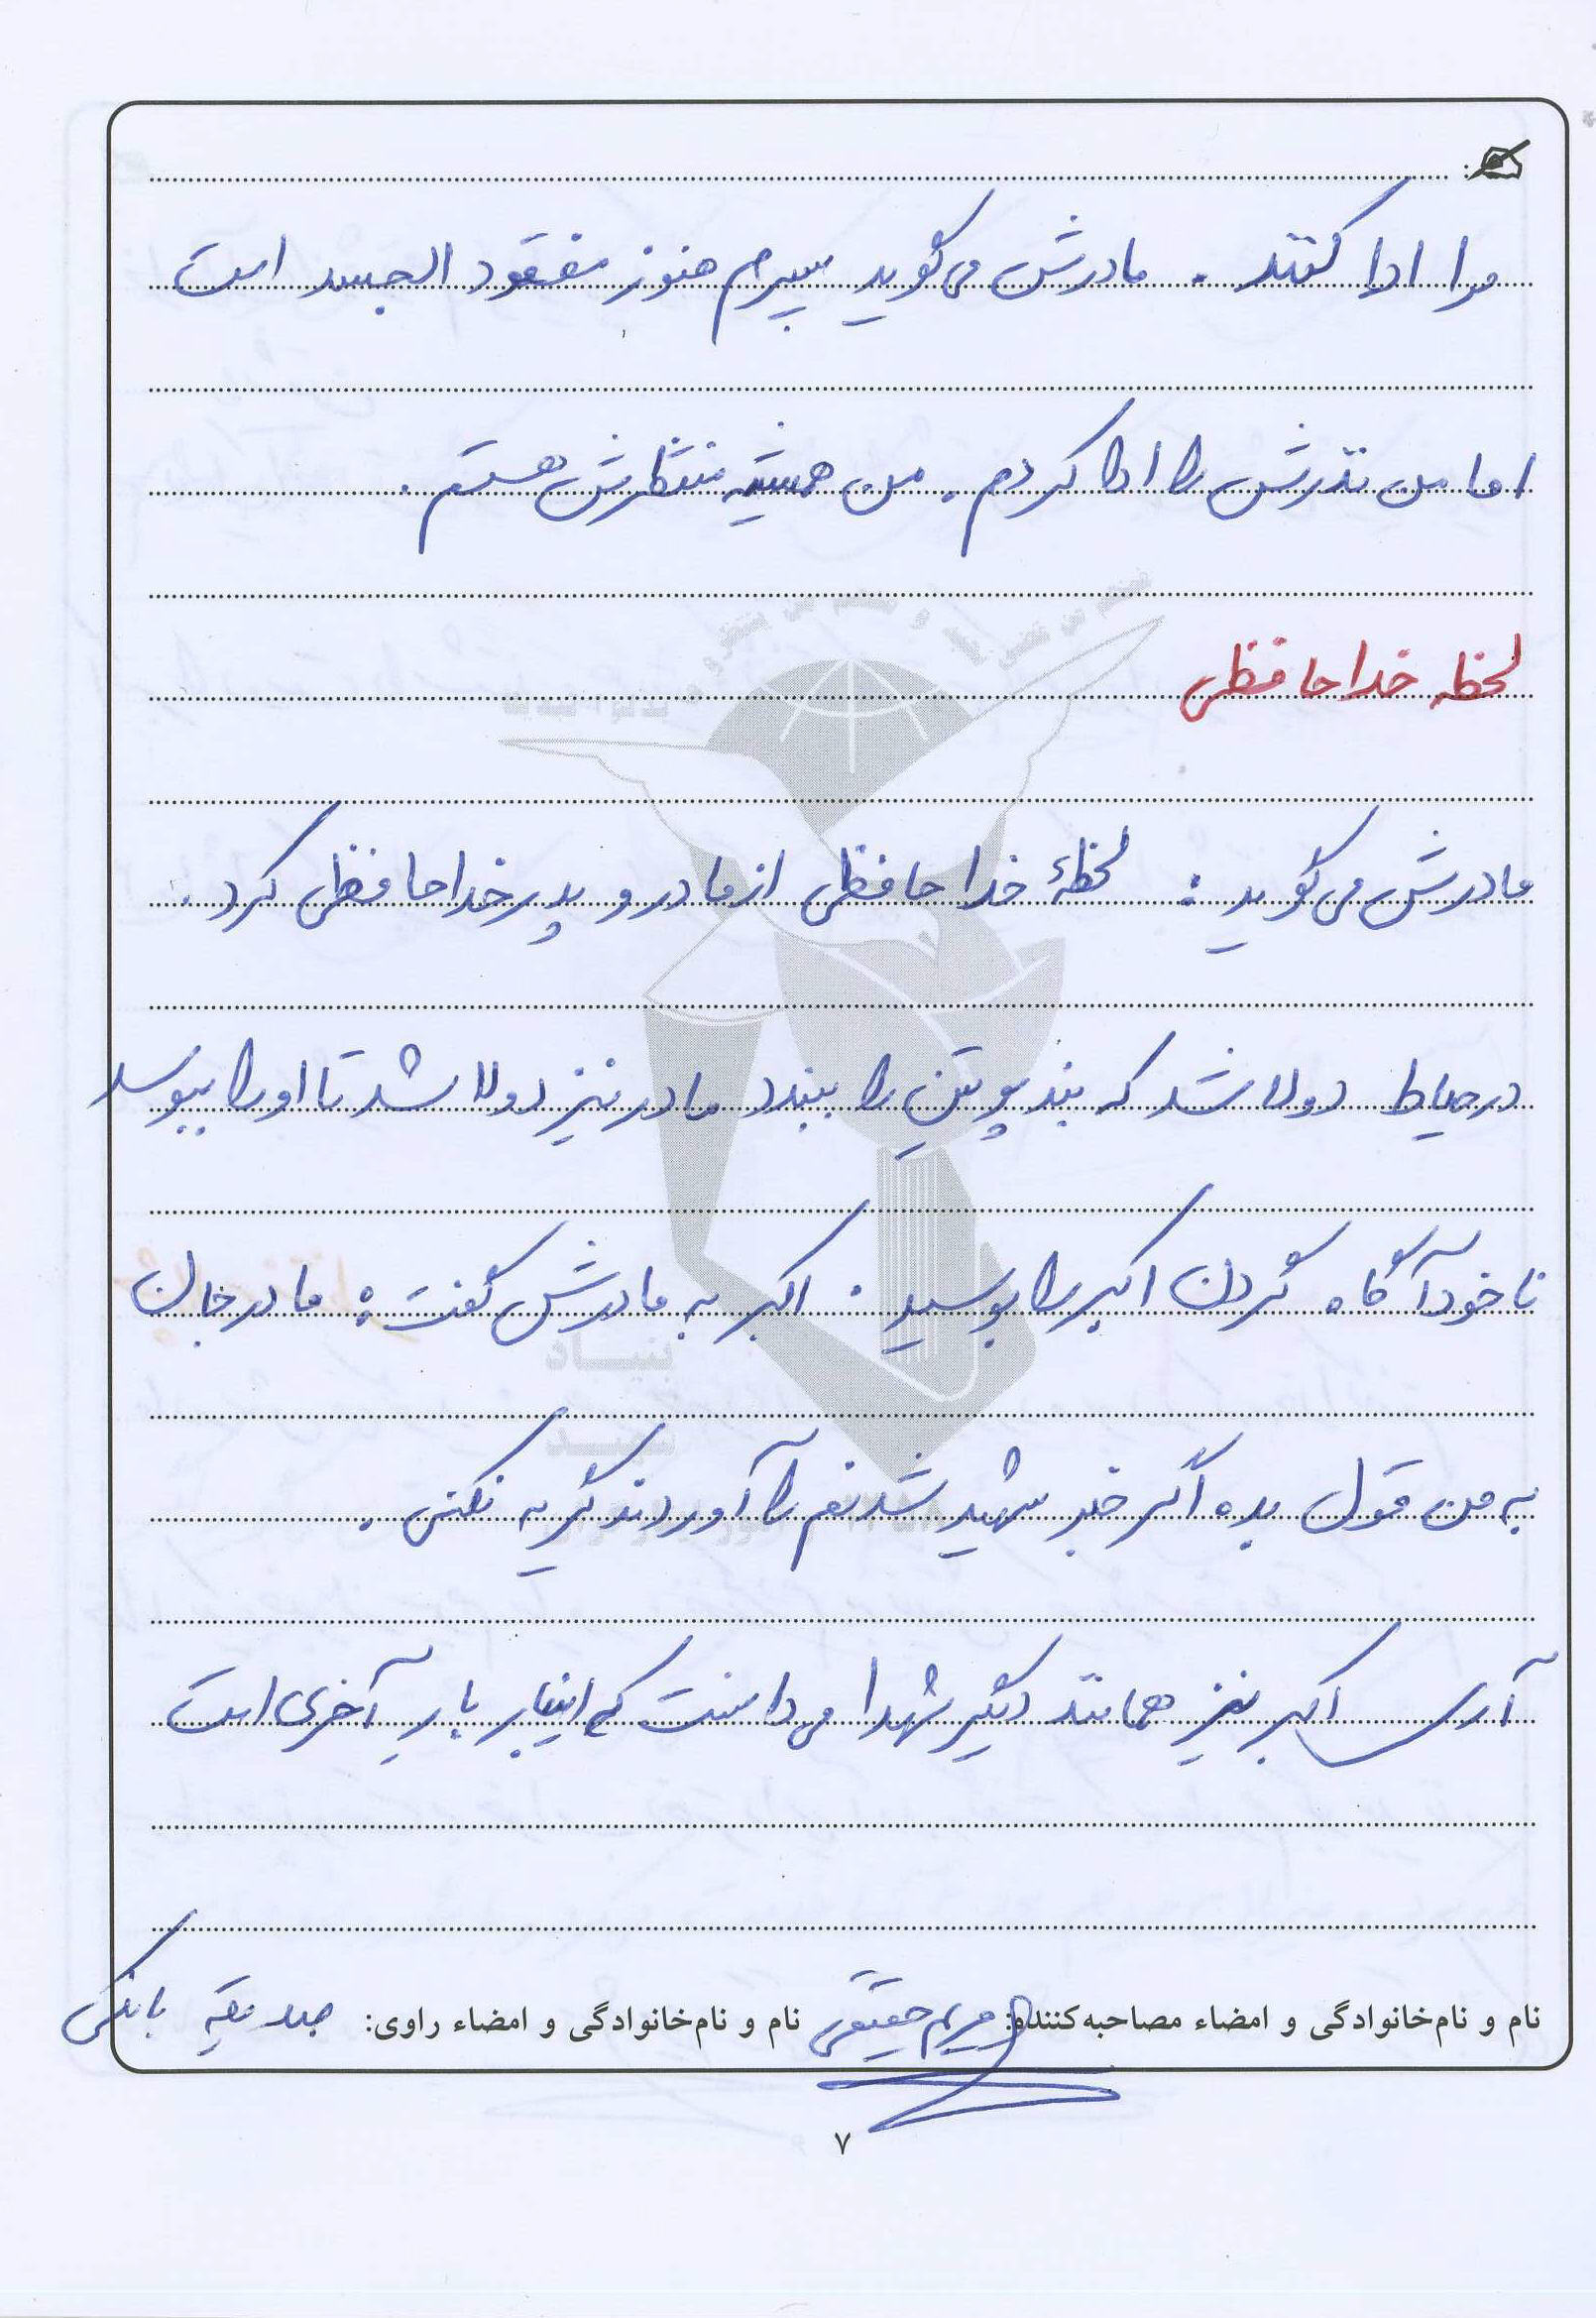 مرا ادا کنند . مادرش می‌گوید پسرم هنوز مفقود الجسد است
اما من نذرش را ادا کردم . من همیشه منتظرش هستم .
لحظه خداحافظی
مادرش می‌گوید : لحظهٔ خداحافظی از مادر و پدر خداحافظی کرد .
در حیاط دولا شد که بند پوتین را ببندد مادر نیز دولا شد تا او را ببوسد
ناخودآگاه گردن اکبر را بوسید . اکبر به مادرش گفت : مادر جان
به من قول بده اگر خبر شهید شدنم را آوردند گریه نکنی .
آری اکبر نیز همانند دیگر شهدا می‌دانست که اینبار بار آخری است
نام و نام‌خانوادگی و امضاء مصاحبه‌کننده: مریم حقیقی نام و نام‌خانوادگی و امضاء راوی: صدیقه
۷